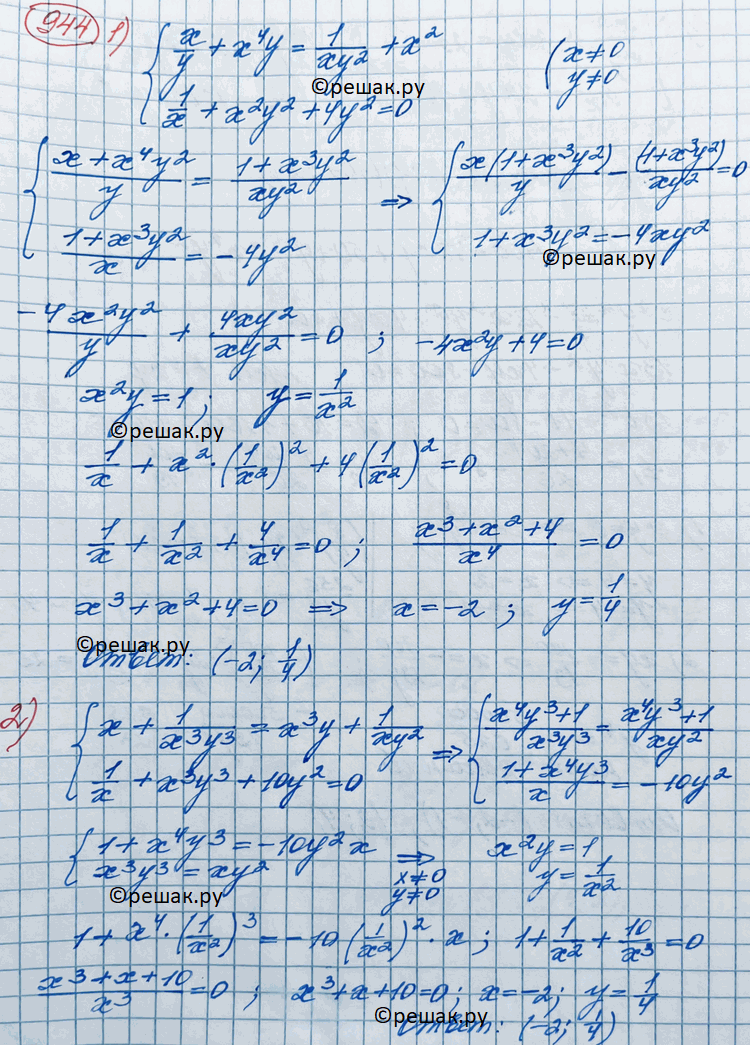 944 1) { x/y + x⁴y = 1/(xy²) + x² ( x≠0
©решак.ру
{ 1/x + x²y² + 4y² = 0 y≠0
{ (x + x⁴y²)/y = (1 + x³y²)/(xy²) => { x(1 + x³y²)/y - (1 + x³y²)/(xy²) = 0
{ (1 + x³y²)/x = -4y² { 1 + x³y² = -4xy²
©решак.ру
-4x²y²/y + 4xy²/(xy²) = 0 ; -4x²y + 4 = 0
x²y = 1 ; y = 1/x²
©решак.ру
1/x + x² · (1/x²)² + 4(1/x²)² = 0
1/x + 1/x² + 4/x⁴ = 0 ; (x³ + x² + 4)/x⁴ = 0
x³ + x² + 4 = 0 => x = -2 ; y = 1/4
©решак.ру
Ответ: (-2; 1/4)
2) { x + 1/(x³y³) = x³y + 1/(xy²) => { (x⁴y³ + 1)/(x³y³) = (x⁴y³ + 1)/(xy²)
{ 1/x + x³y³ + 10y² = 0 { (1 + x⁴y³)/x = -10y²
{ 1 + x⁴y³ = -10y²x => x²y = 1
{ x³y³ = xy² x≠0 y≠0 y = 1/x²
©решак.ру
1 + x⁴ · (1/x²)³ = -10(1/x²)² · x ; 1 + 1/x² + 10/x³ = 0
(x³ + x + 10)/x³ = 0 ; x³ + x + 10 = 0 ; x = -2 ; y = 1/4
©решак.ру
Ответ: (-2; 1/4)